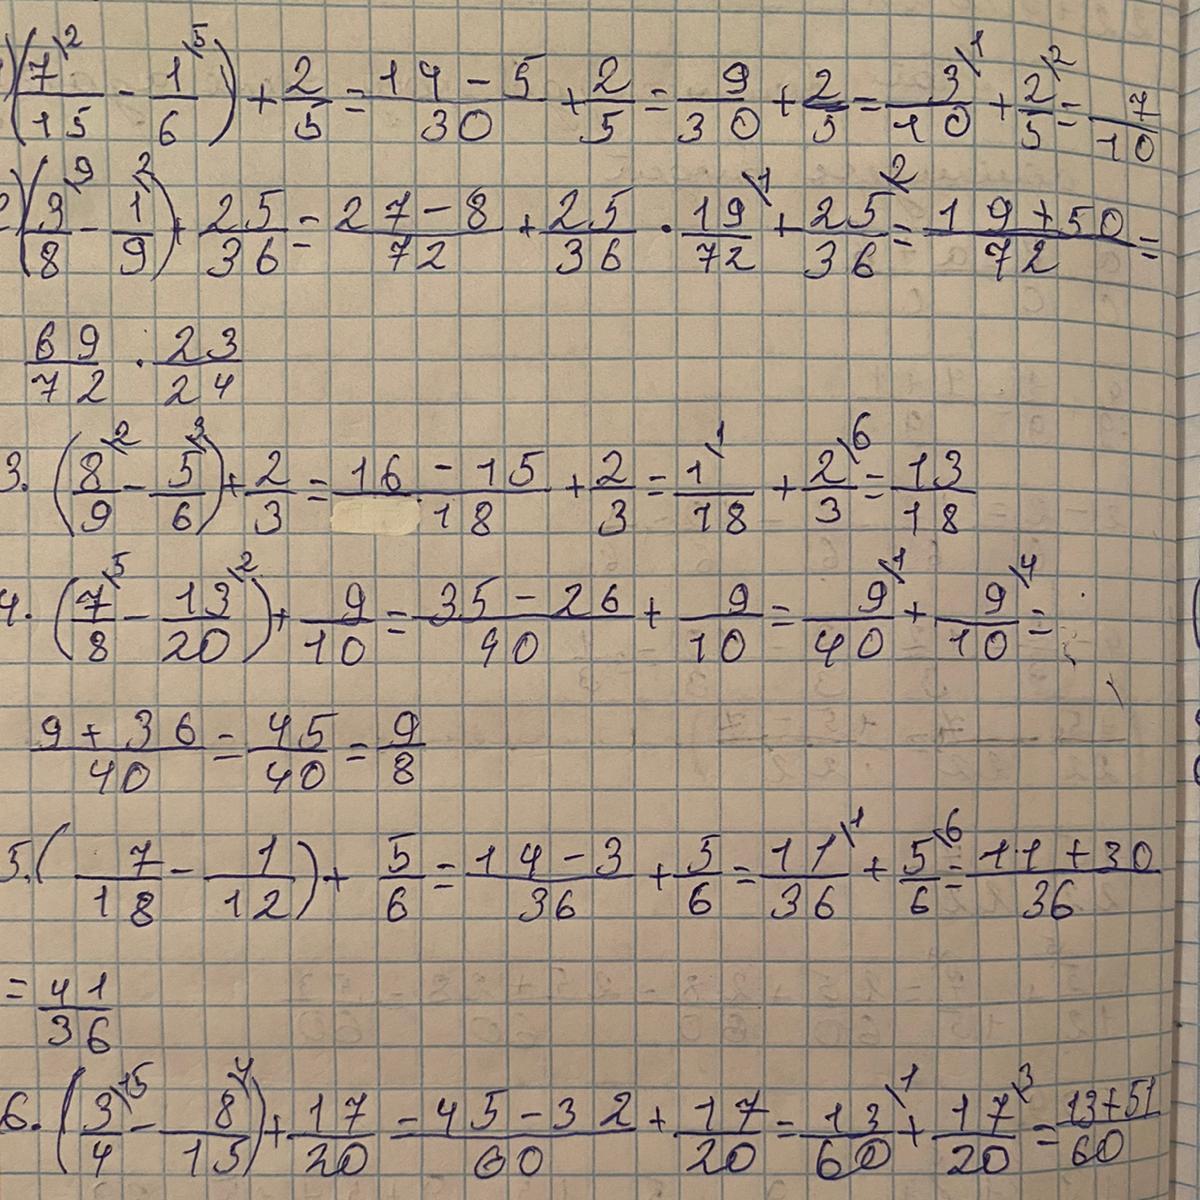 1)(7\2/15 - 1\5/6) + 2/5 = 14-5/30 + 2/5 = 9/30 + 2/5 = 3\1/10 + 2\2/5 = 7/10
2)(3\9/8 - 1\2/9) + 25/36 = 27-8/72 + 25/36 · 19\1/72 + 25\2/36 = 19+50/72 =
69/72 · 23/24
3. (8\2/9 - 5\3/6) + 2/3 = 16-15/18 + 2/3 = 1\1/18 + 2\6/3 = 13/18
4. (7\5/8 - 13\2/20) + 9/10 = 35-26/40 + 9/10 = 9\1/40 + 9\4/10 =
9+36/40 = 45/40 = 9/8
5. (7/18 - 1/12) + 5/6 = 14-3/36 + 5/6 = 11\1/36 + 5\6/6 = 11+30/36
= 41/36
6. (3\15/4 - 8\4/15) + 17/20 = 45-32/60 + 17/20 = 13\1/60 + 17\3/20 = 13+51/60